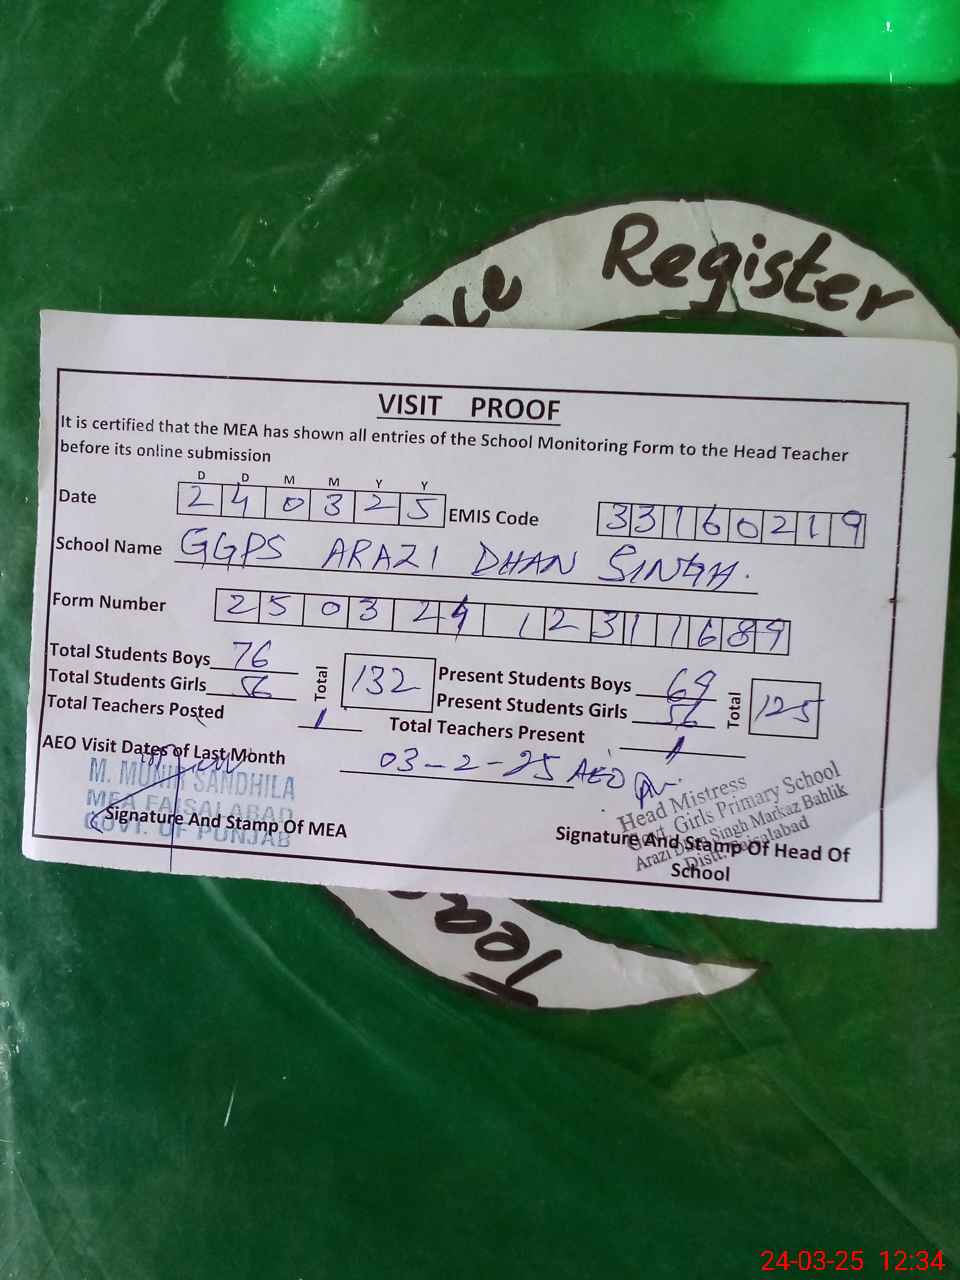 ce Register
VISIT PROOF
It is certified that the MEA has shown all entries of the School Monitoring Form to the Head Teacher
before its online submission
D D M M Y Y
Date 2 4 0 3 2 5 EMIS Code 3 3 1 6 0 2 1 9
School Name GGPS ARAZI DHAN SINGH.
Form Number 2 5 0 3 2 4 1 2 3 1 1 6 8 9
Total Students Boys 76 Total 132 Present Students Boys 69 Total 125
Total Students Girls 56 Present Students Girls 56
Total Teachers Posted 1 Total Teachers Present 1
AEO Visit Dates of Last Month 03-2-25 AEO
M. MUNIR SANDHILA
MEA FAISALABAD
GOVT. OF PUNJAB
Signature And Stamp Of MEA
Head Mistress
Govt. Girls Primary School
Arazi Dhan Singh Markaz Bahlik
Distt. Faisalabad
Signature And Stamp Of Head Of
School
Teac
24-03-25 12:34